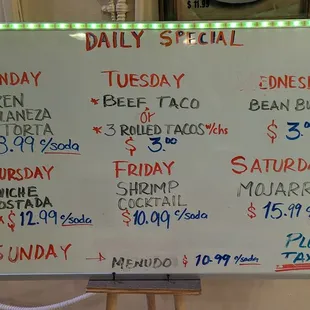 $11.99
DAILY SPECIAL
NDAY
KEN
LANEZA
TORTA
8.99 c/soda
TUESDAY
* BEEF TACO
OR
* 3 ROLLED TACOS w/chs
$ 3.00
EDNES
BEAN BU
$ 3.0
URSDAY
ICHE
OSTADA
$ 12.99 c/soda
FRIDAY
SHRIMP
COCKTAIL
$10.99 c/soda
SATURDA
MOJARR
$15.99 c
SUNDAY
MENUDO $ 10.99 c/soda
PL
TAX